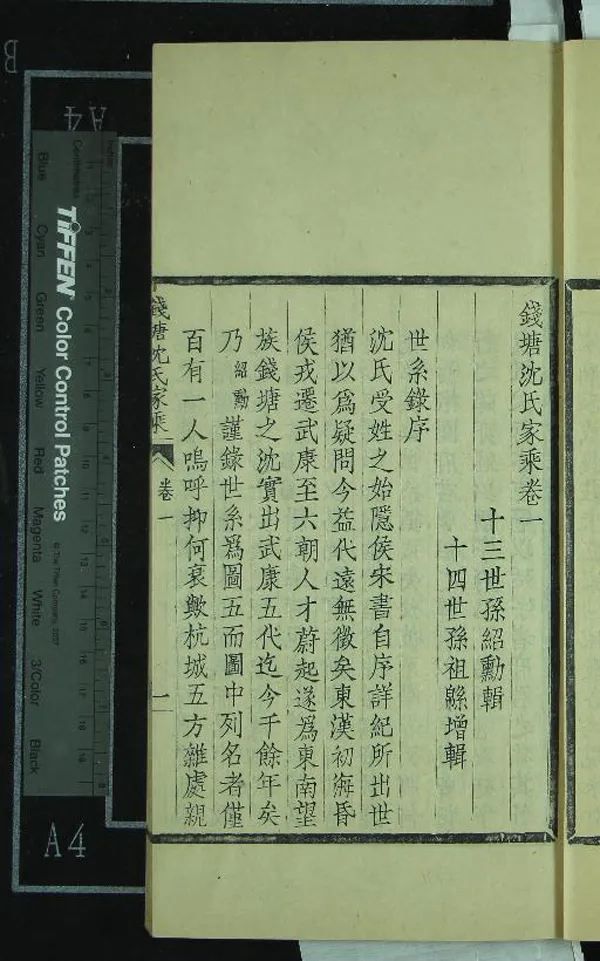 錢塘沈氏家乘卷一
十三世孫紹勳輯
十四世孫祖緜增輯
世系錄序
沈氏受姓之始隱侯宋書自序詳紀所出世
猶以爲疑問今益代遠無徵矣東漢初海昏
侯戎遷武康至六朝人才蔚起遂爲東南望
族錢塘之沈實出武康五代迄今千餘年矣
乃紹勳謹錄世系爲圖五而圖中列名者僅
百有一人嗚呼抑何衰歟杭城五方雜處親
錢塘沈氏家乘
卷一
一
A4
A4
B
Inches
Centimetres
TIFFEN Color Control Patches
© The Tiffen Company, 2007
Blue
Cyan
Green
Yellow
Red
Magenta
White
3/Color
Black